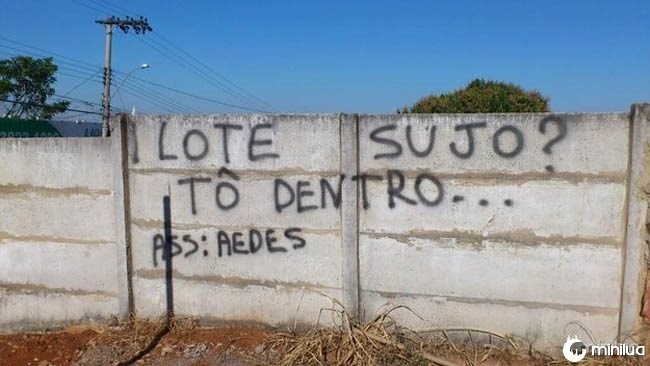 LOTE SUJO?
TÔ DENTRO...
ASS: AEDES
minilua